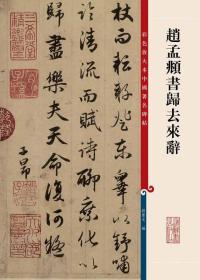 趙孟頫書歸去來辭
彩色放大本中國著名碑帖
孫寶文 編
杖而耘耔登東皋以舒嘯
臨清流而賦詩聊乘化以
歸盡樂夫天命復奚疑
子昂